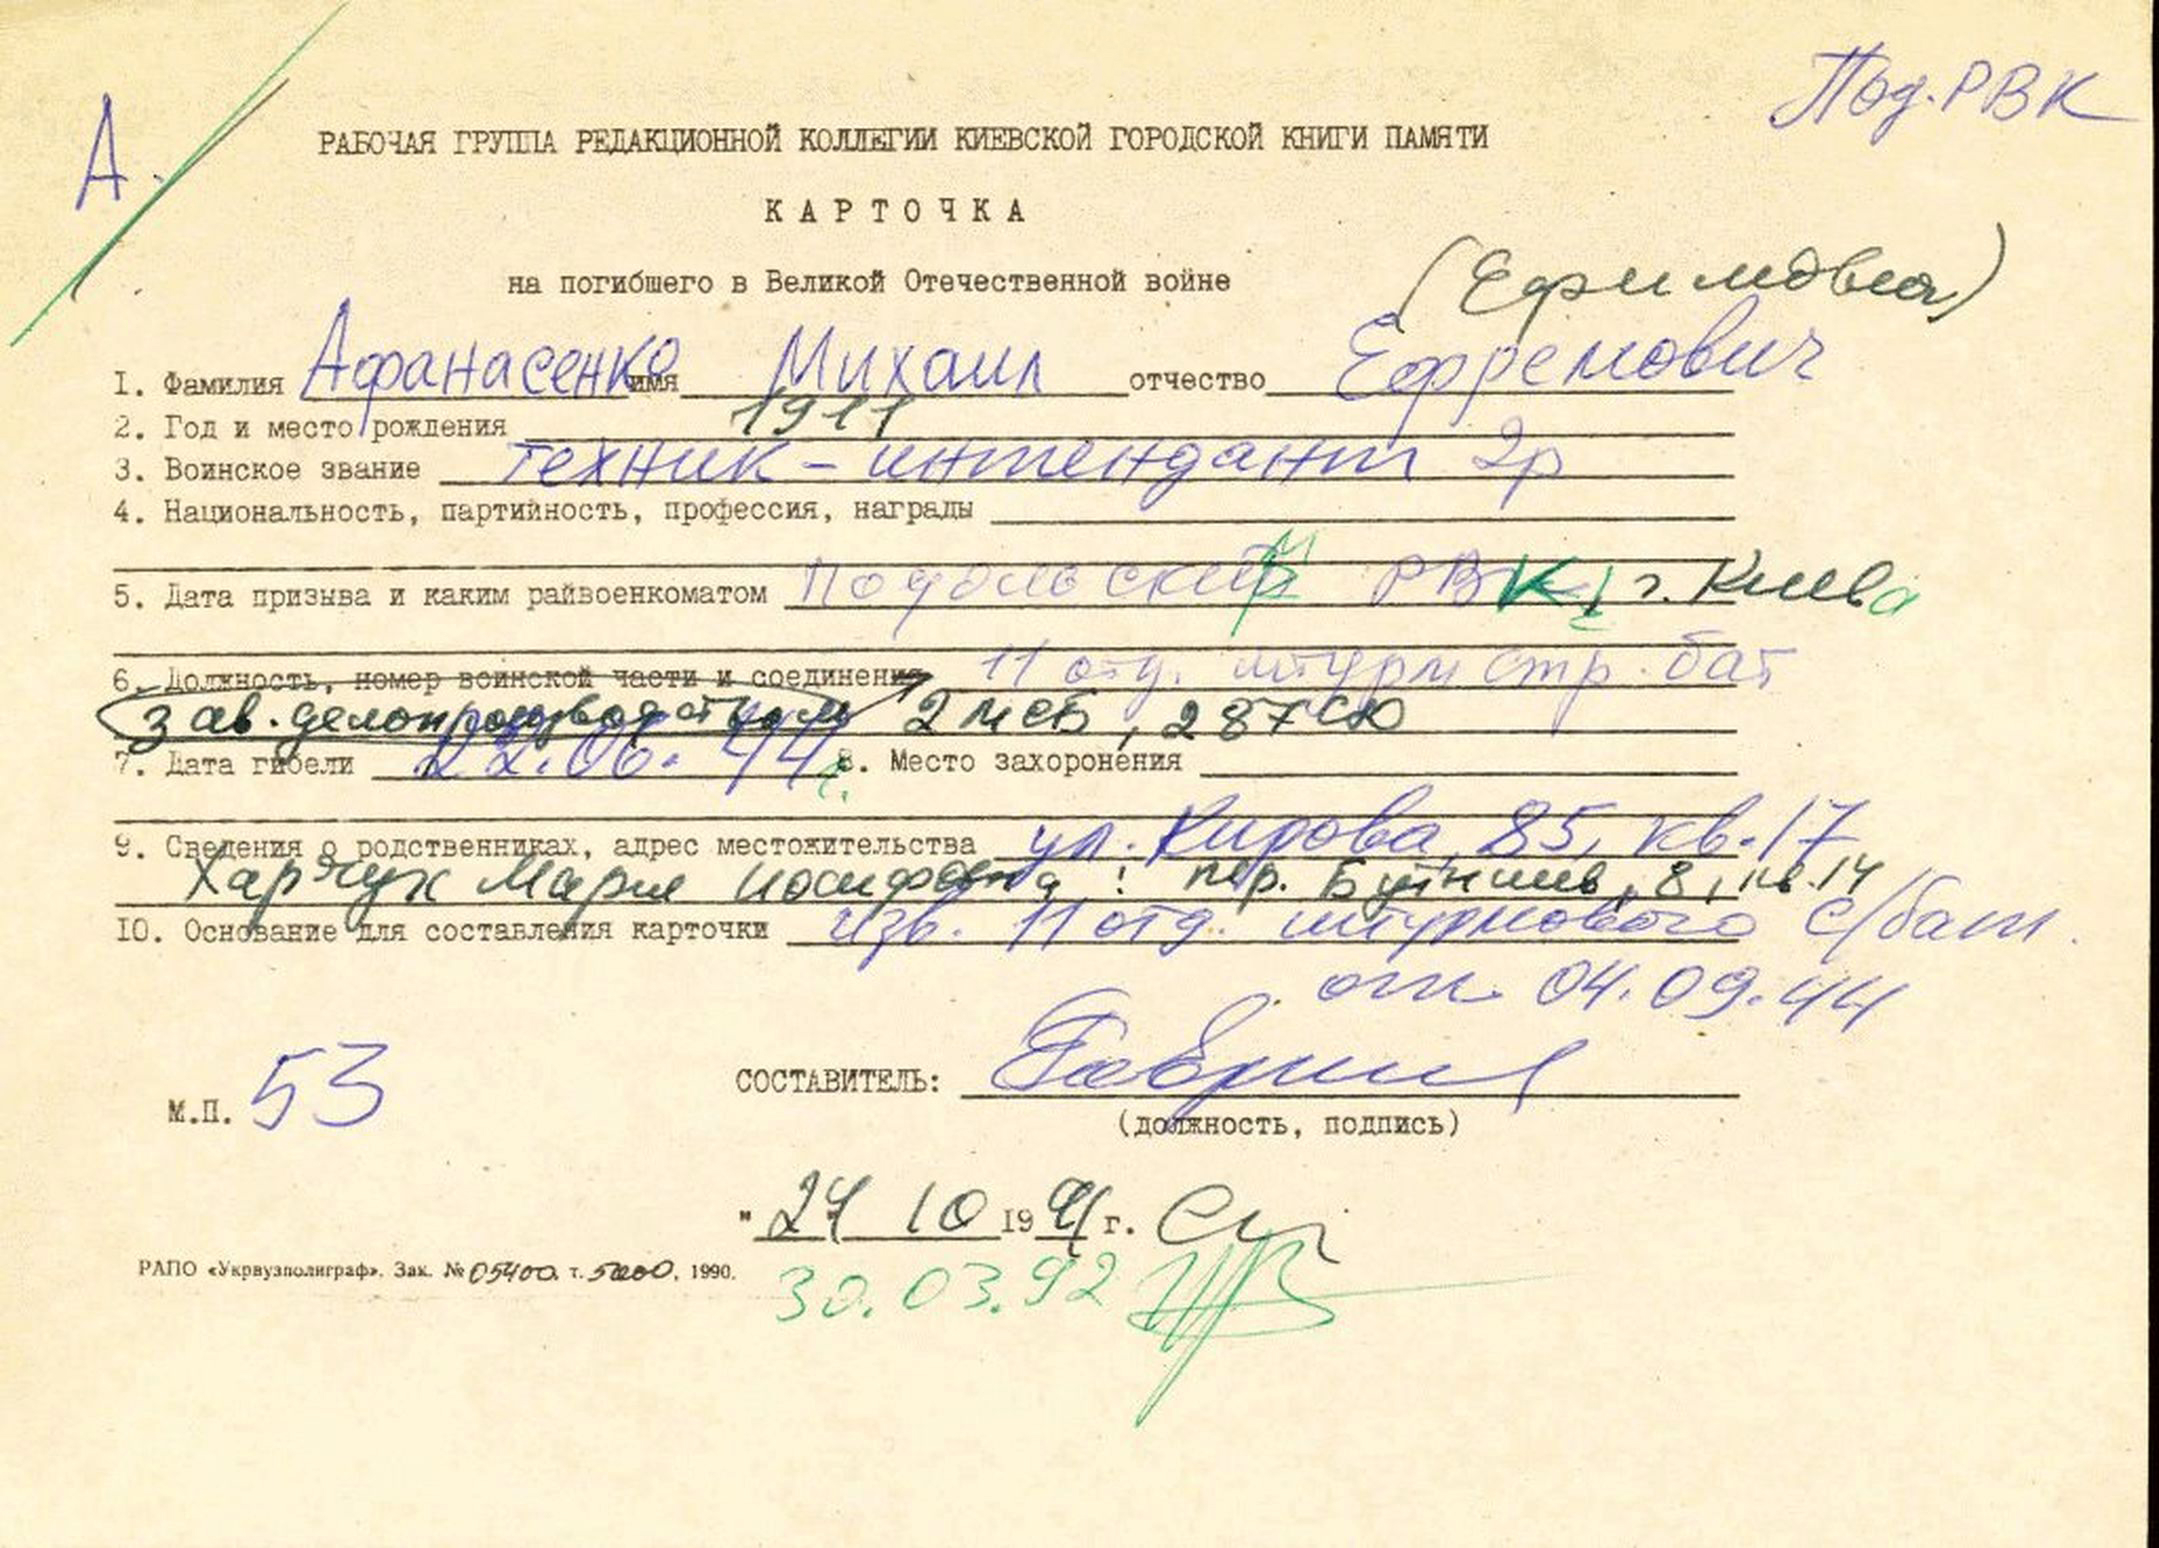 Под. РВК
А.
РАБОЧАЯ ГРУППА РЕДАКЦИОННОЙ КОЛЛЕГИИ КИЕВСКОЙ ГОРОДСКОЙ КНИГИ ПАМЯТИ
КАРТОЧКА
на погибшего в Великой Отечественной войне
1. Фамилия Афанасенко имя Михаил отчество Ефремович
2. Год и место рождения 1911
3. Воинское звание техник-интендант 2р
4. Национальность, партийность, профессия, награды
5. Дата призыва и каким райвоенкоматом Подольским РВК, г. Киева
6. Должность, номер воинской части и соединения 11 отд. штурм стр. бат
зав. делопроизводством 2 МСБ, 287
7. Дата гибели 22.06.44 8. Место захоронения
9. Сведения о родственниках, адрес местожительства ул. Кирова, 85, кв. 17
Харчук Иосифовна: пер. 8, кв. 14
10. Основание для составления карточки изв. 11 отд. штурмового с/бат.
от 04.09.44
М.П. 53
СОСТАВИТЕЛЬ:
(должность, подпись)
"24" 10 1991 г.
РАПО «Укрвузполиграф». Зак. № 05400. т. 5000, 1990.
30.03.92